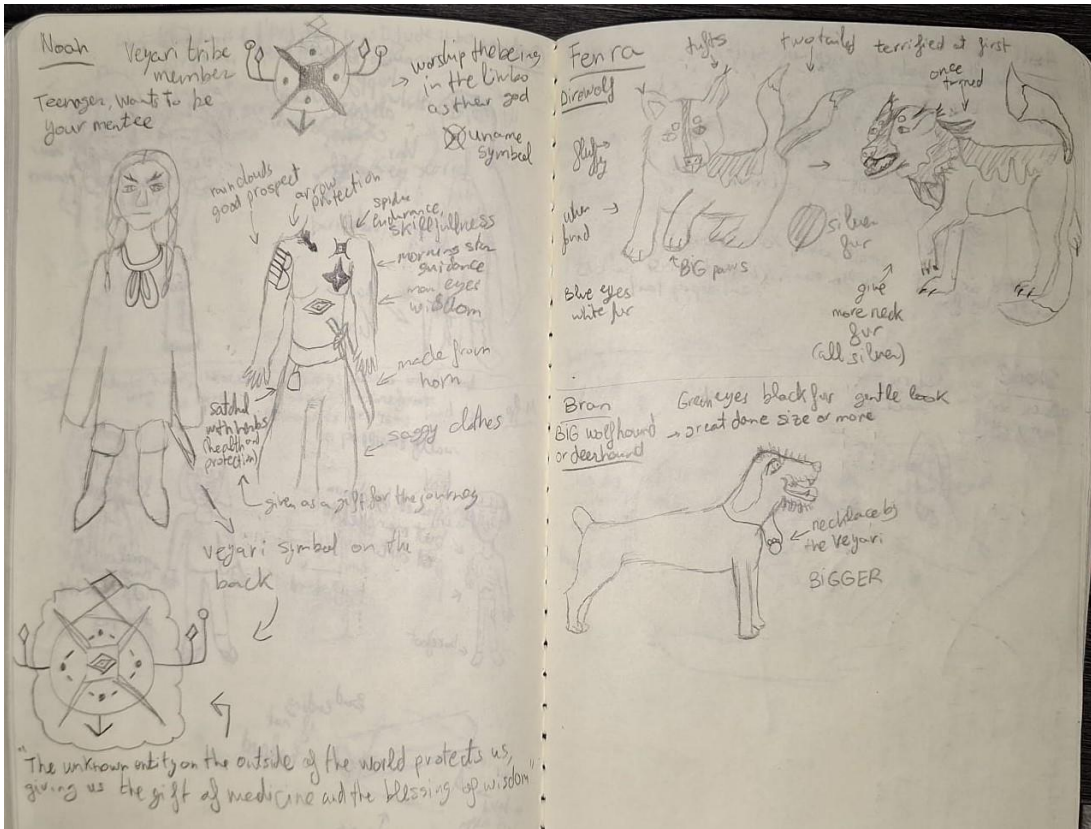 Noah
Veyari tribe
member
Teenager, wants to be
your mentee
→ worship the being
in the limbo
as their god
uname
symbol
rain clouds
good prospect
arrow
protection
spider
endurance,
skillfullness
morning star
guidance
man eyes
wisdom
made from
horn
satchel
with herbs
(health and
protection)
saggy clothes
given as a gift for the journey
veyari symbol on the
back
"The unknown entity on the outside of the world protects us,
giving us the gift of medicine and the blessing of wisdom"
Fenra
Direwolf
tufts
two tailed
terrified at first
once
turned
fluffy
when
found
silver
fur
BIG paws
Blue eyes
white fur
give
more neck
fur
(all silver)
Bran
Green eyes black fur gentle look
BIG wolfhound
or deerhound
→ great dane size or more
necklace by
the veyari
BIGGER